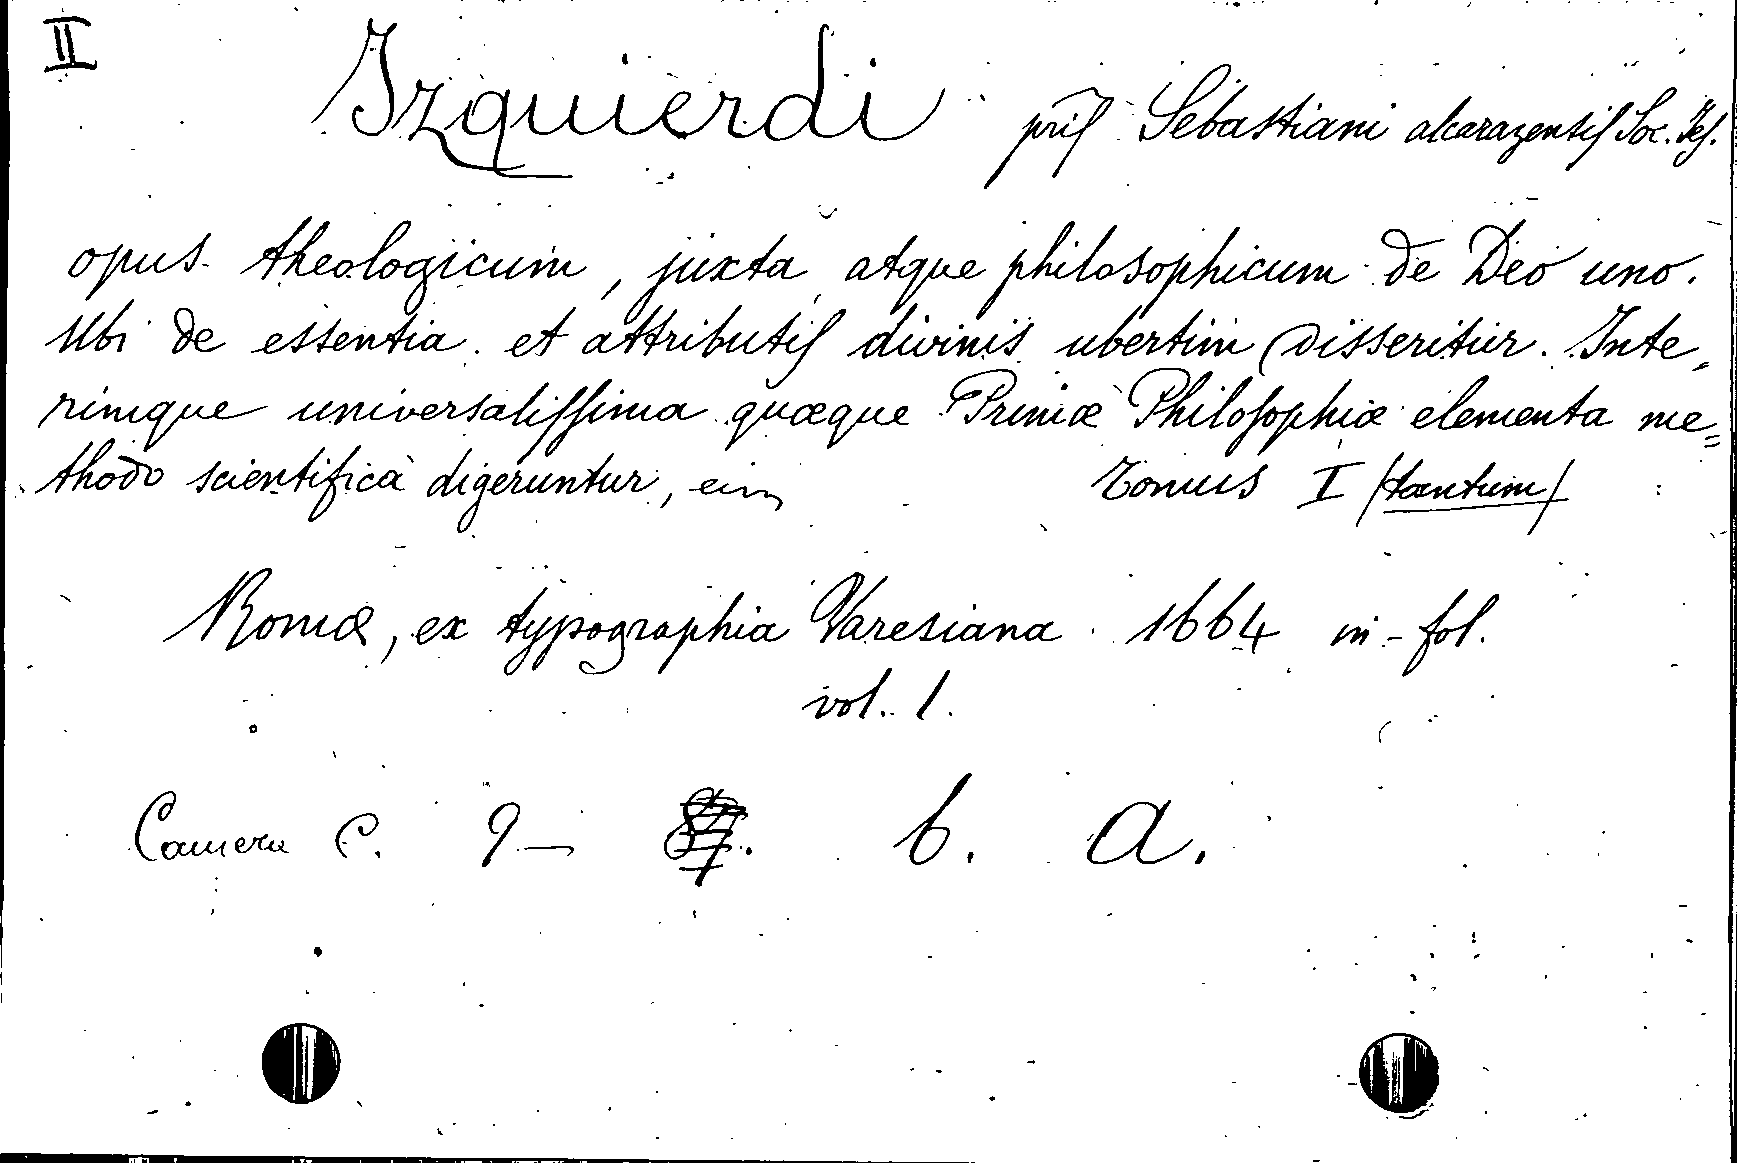 II
Izquierdi pris Sebastiani alcarazensis Soc. Jes.
opus theologicum, juxta atque philosophicum de Deo uno.
Ubi de essentia et attributis divinis ubertim disseritur. Inte„
rimque universalissima quæque Primæ Philosophiæ elementa me=
thodo scientificà digeruntur, Tomus I (tantum)
Romæ, ex typographia Varesiana 1664 in-fol.
vol. 1.
Camera C. 9- 6. a.